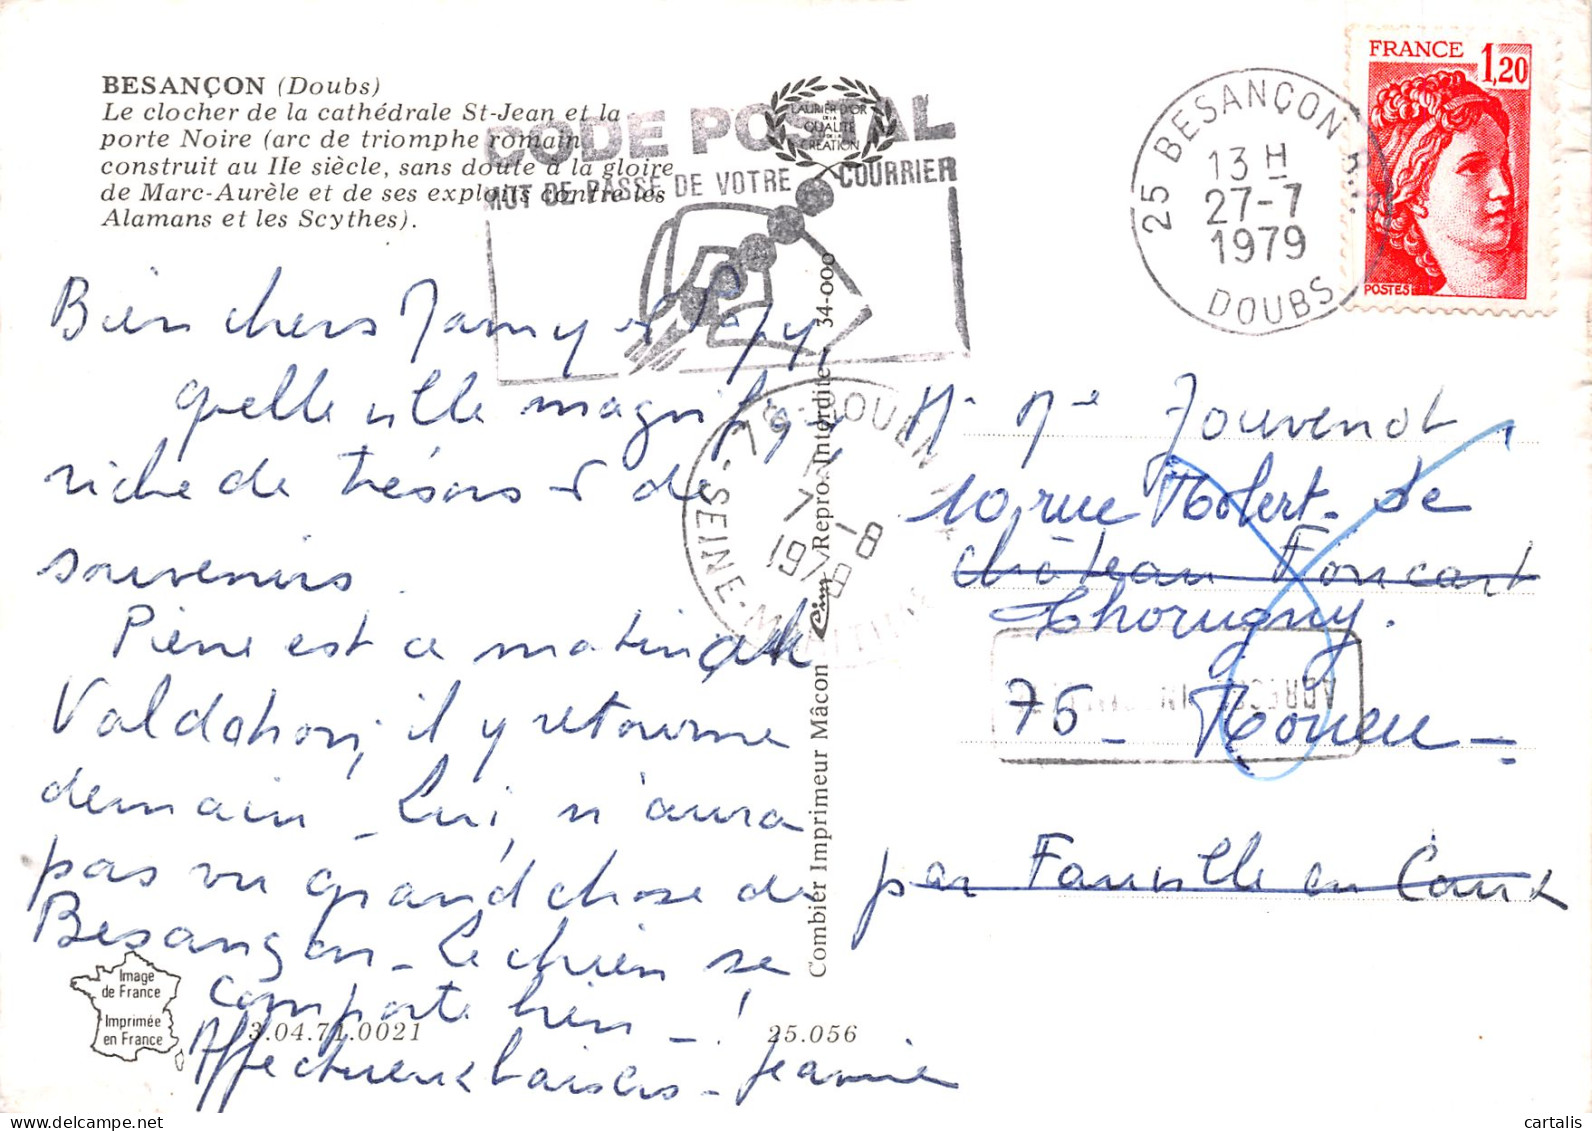 BESANÇON (Doubs)
Le clocher de la cathédrale St-Jean et la
porte Noire (arc de triomphe romain
construit au IIe siècle, sans doute à la gloire
de Marc-Aurèle et de ses exploits contre les
Alamans et les Scythes).
CODE POSTAL
MOT DE PASSE DE VOTRE COURRIER
LAURIER D'OR
DE LA
QUALITÉ
CRÉATION
25 BESANÇON
13 H
27-7
1979
DOUBS
FRANCE 1,20
POSTES
Bien chers Mamy et Papy,
quelle ville magnifique
riche de trésors et de
souvenirs.
Pierre est ce matin au
Valdahon, il y retourne
demain - Lui, n'aura
pas vu grand chose de
Besançon - Le chien se
comporte bien - !
Affectueux baisers - Jeannine
76 ROUEN
7-8
1979
SEINE-MARITIME
M. Me Jouvenot
10 rue Robert de
château Foucart
Thorigny.
76 - Rouen -
par Fauville en Caux
Combier Imprimeur Mâcon Cim Repro. Interdite 34-000
Image
de France
Imprimée
en France
3.04.71.0021
25.056
cartalis
www.delcampe.net